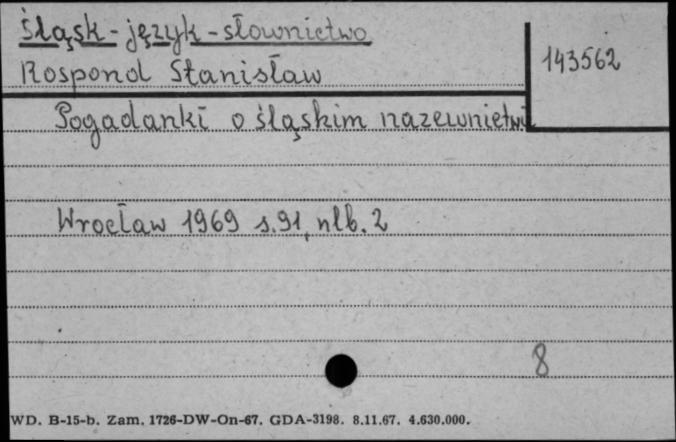 Śląsk - język - słownictwo
Rospond Stanisław
143562
Pogadanki o śląskim nazewnictwie
Wrocław 1969 s. 91, nlb. 2
8
WD. B-15-b. Zam. 1726-DW-On-67. GDA-3198. 8.11.67. 4.630.000.